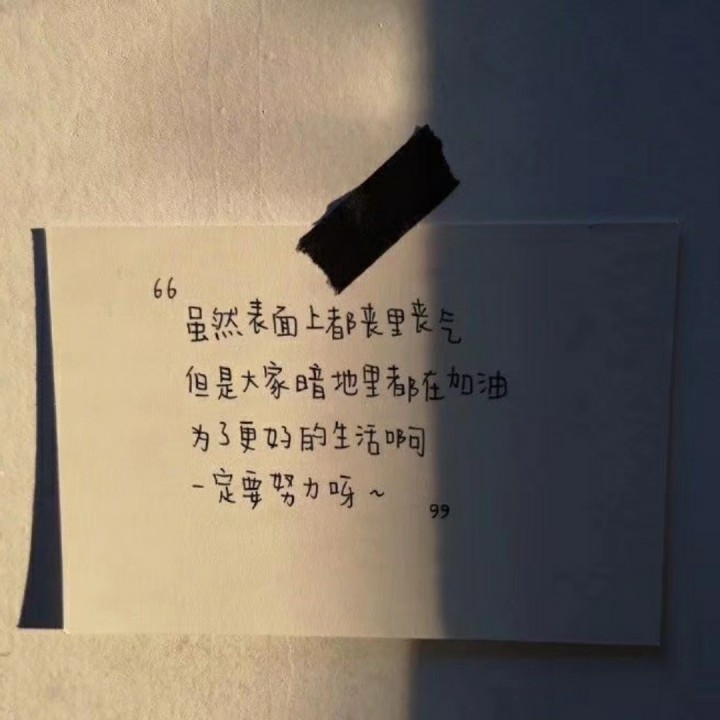 “虽然表面上都丧里丧气
但是大家暗地里都在加油
为了更好的生活啊
一定要努力呀～”